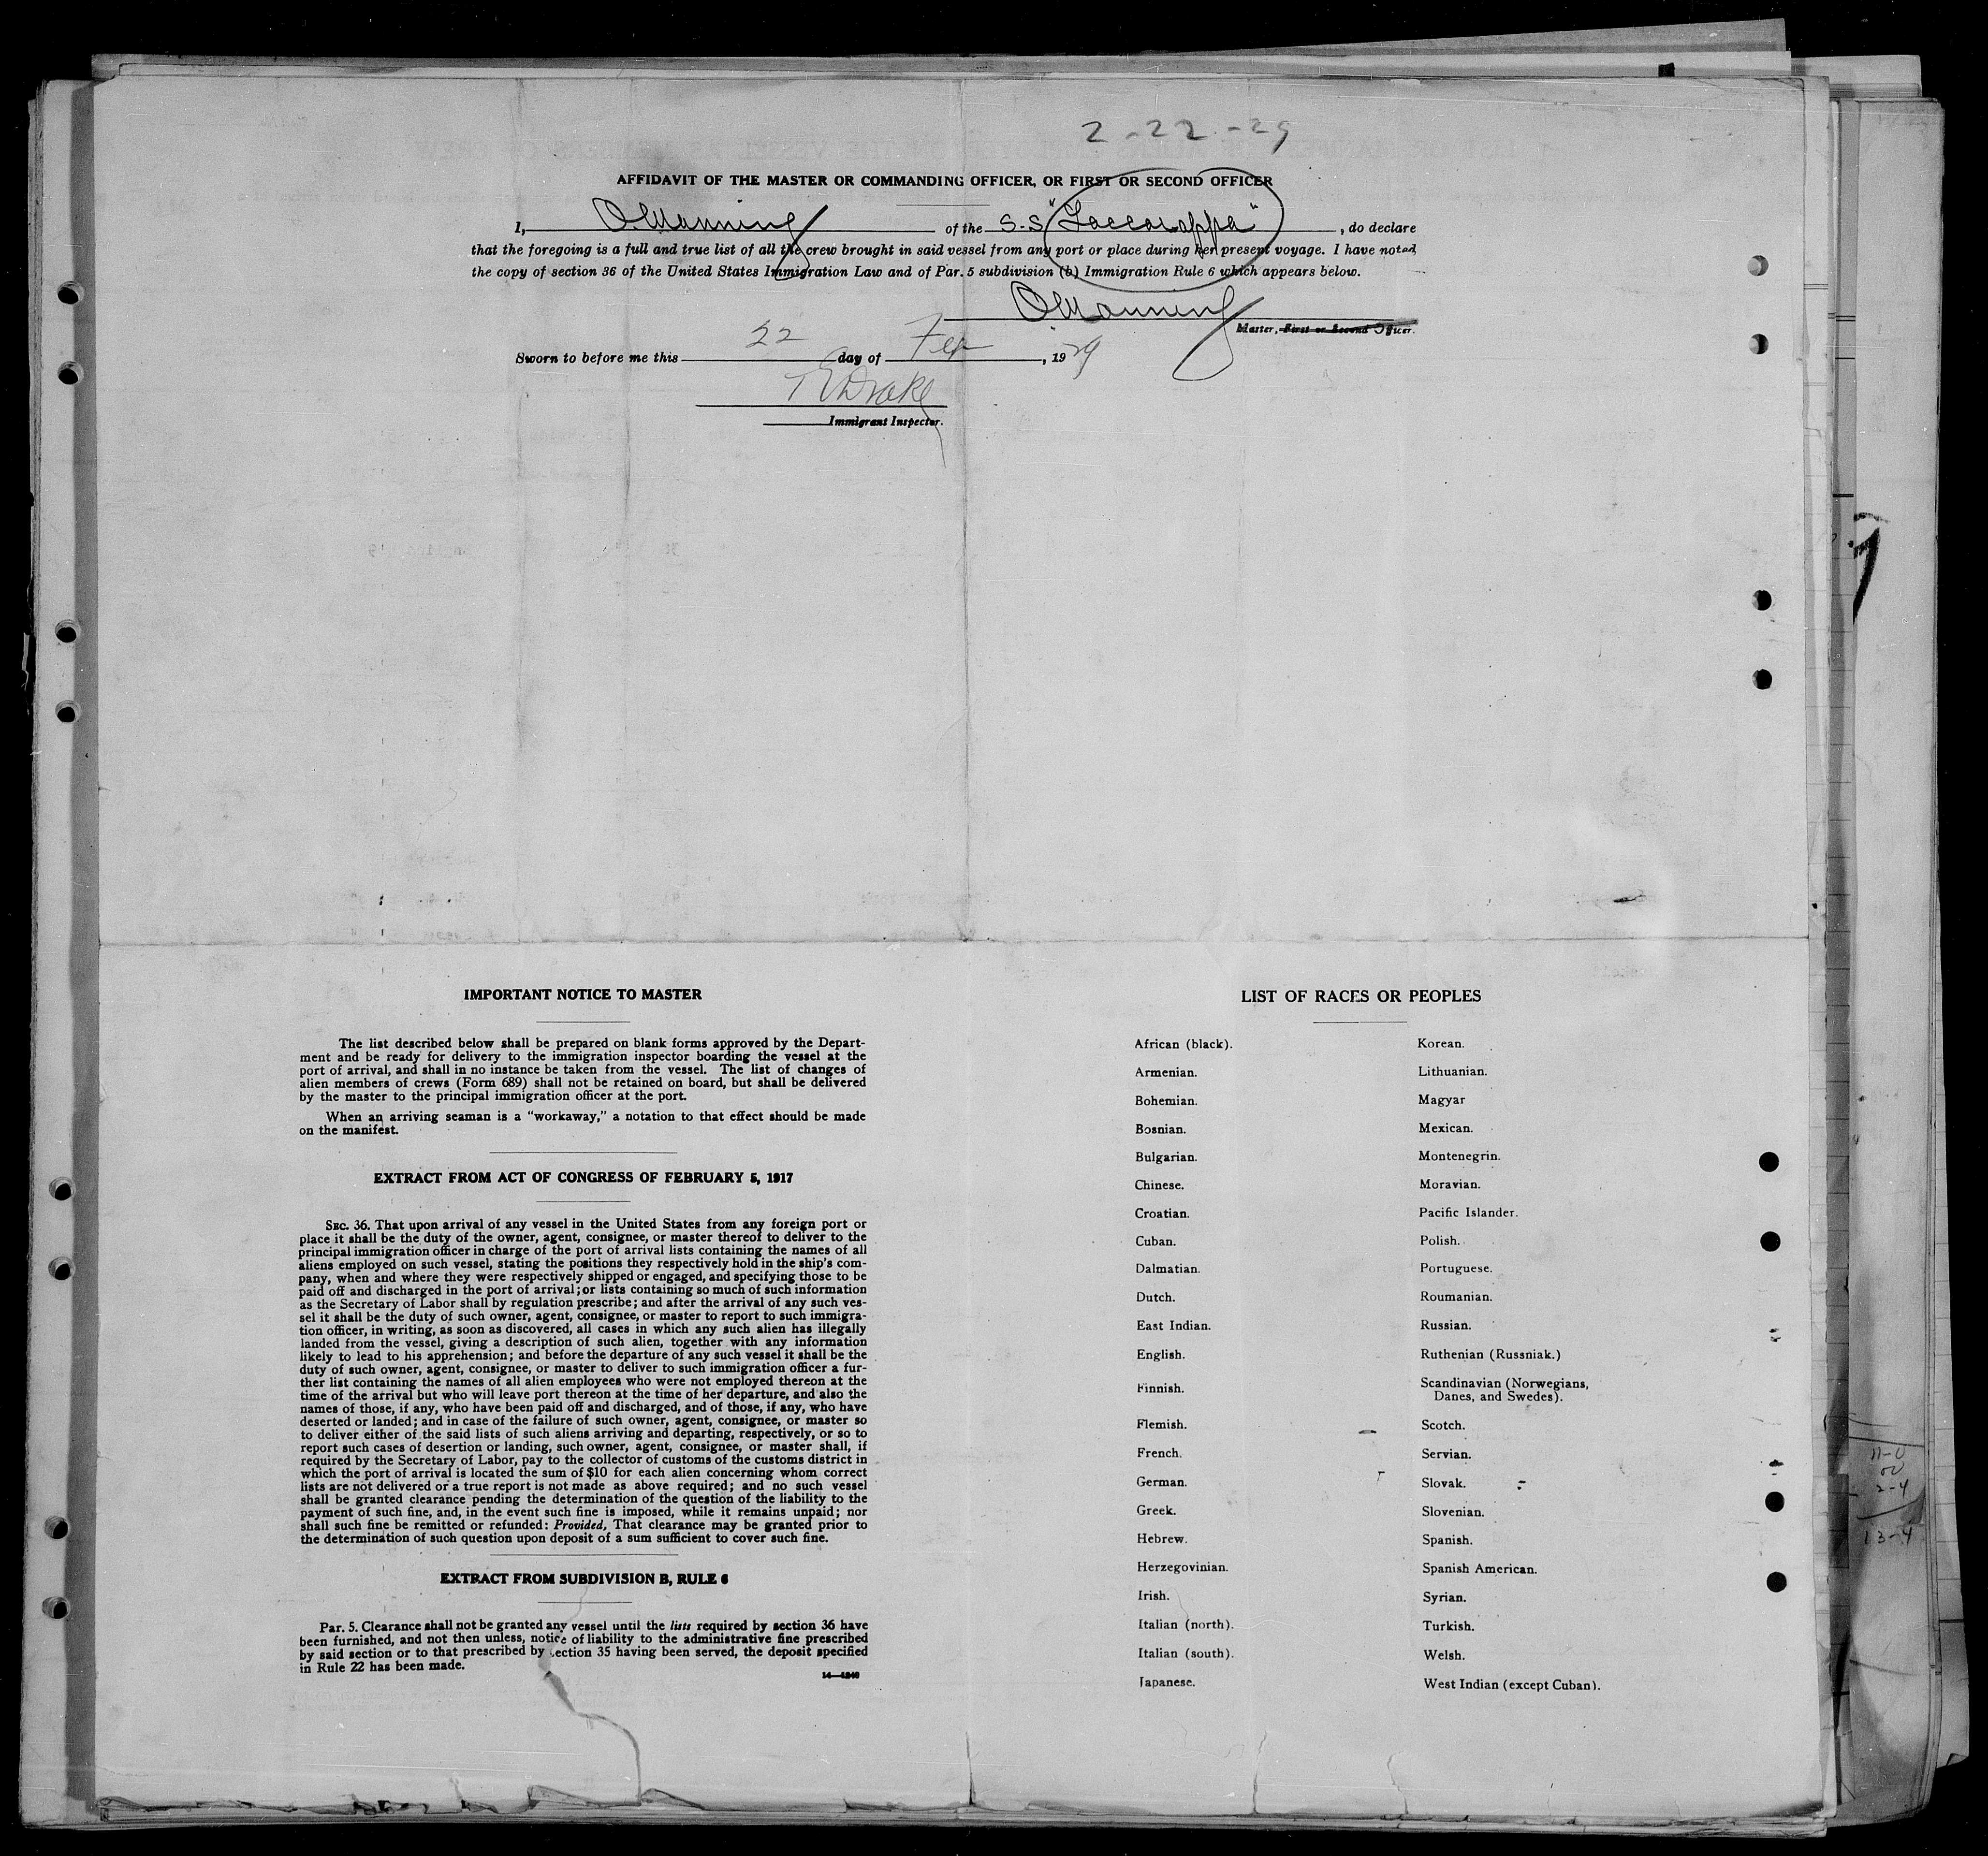 2-22-29
AFFIDAVIT OF THE MASTER OR COMMANDING OFFICER, OR FIRST OR SECOND OFFICER
I, O Manning of the S.S "Saccarappa", do declare
that the foregoing is a full and true list of all the crew brought in said vessel from any port or place during her present voyage. I have noted
the copy of section 36 of the United States Immigration Law and of Par. 5 subdivision (b) Immigration Rule 6 which appears below.
O Manning
Master, First or Second Officer.
Sworn to before me this 22 day of Feb, 1929
T E Drake
Immigrant Inspector.
IMPORTANT NOTICE TO MASTER
The list described below shall be prepared on blank forms approved by the Depart-
ment and be ready for delivery to the immigration inspector boarding the vessel at the
port of arrival, and shall in no instance be taken from the vessel. The list of changes of
alien members of crews (Form 689) shall not be retained on board, but shall be delivered
by the master to the principal immigration officer at the port.
When an arriving seaman is a "workaway," a notation to that effect should be made
on the manifest.
EXTRACT FROM ACT OF CONGRESS OF FEBRUARY 5, 1917
SEC. 36. That upon arrival of any vessel in the United States from any foreign port or
place it shall be the duty of the owner, agent, consignee, or master thereof to deliver to the
principal immigration officer in charge of the port of arrival lists containing the names of all
aliens employed on such vessel, stating the positions they respectively hold in the ship's com-
pany, when and where they were respectively shipped or engaged, and specifying those to be
paid off and discharged in the port of arrival; or lists containing so much of such information
as the Secretary of Labor shall by regulation prescribe; and after the arrival of any such ves-
sel it shall be the duty of such owner, agent, consignee, or master to report to such immigra-
tion officer, in writing, as soon as discovered, all cases in which any such alien has illegally
landed from the vessel, giving a description of such alien, together with any information
likely to lead to his apprehension; and before the departure of any such vessel it shall be the
duty of such owner, agent, consignee, or master to deliver to such immigration officer a fur-
ther list containing the names of all alien employees who were not employed thereon at the
time of the arrival but who will leave port thereon at the time of her departure, and also the
names of those, if any, who have been paid off and discharged, and of those, if any, who have
deserted or landed; and in case of the failure of such owner, agent, consignee, or master so
to deliver either of the said lists of such aliens arriving and departing, respectively, or so to
report such cases of desertion or landing, such owner, agent, consignee, or master shall, if
required by the Secretary of Labor, pay to the collector of customs of the customs district in
which the port of arrival is located the sum of $10 for each alien concerning whom correct
lists are not delivered or a true report is not made as above required; and no such vessel
shall be granted clearance pending the determination of the question of the liability to the
payment of such fine, and, in the event such fine is imposed, while it remains unpaid; nor
shall such fine be remitted or refunded: Provided, That clearance may be granted prior to
the determination of such question upon deposit of a sum sufficient to cover such fine.
EXTRACT FROM SUBDIVISION B, RULE 6
Par. 5. Clearance shall not be granted any vessel until the lists required by section 36 have
been furnished, and not then unless, notice of liability to the administrative fine prescribed
by said section or to that prescribed by section 35 having been served, the deposit specified
in Rule 22 has been made.
LIST OF RACES OR PEOPLES
African (black).
Armenian.
Bohemian.
Bosnian.
Bulgarian.
Chinese.
Croatian.
Cuban.
Dalmatian.
Dutch.
East Indian.
English.
Finnish.
Flemish.
French.
German.
Greek.
Hebrew.
Herzegovinian.
Irish.
Italian (north).
Italian (south).
Japanese.
Korean.
Lithuanian.
Magyar
Mexican.
Montenegrin.
Moravian.
Pacific Islander.
Polish.
Portuguese.
Roumanian.
Russian.
Ruthenian (Russniak.)
Scandinavian (Norwegians,
Danes, and Swedes).
Scotch.
Servian.
Slovak.
Slovenian.
Spanish.
Spanish American.
Syrian.
Turkish.
Welsh.
West Indian (except Cuban).
11-0
2-4
13-4